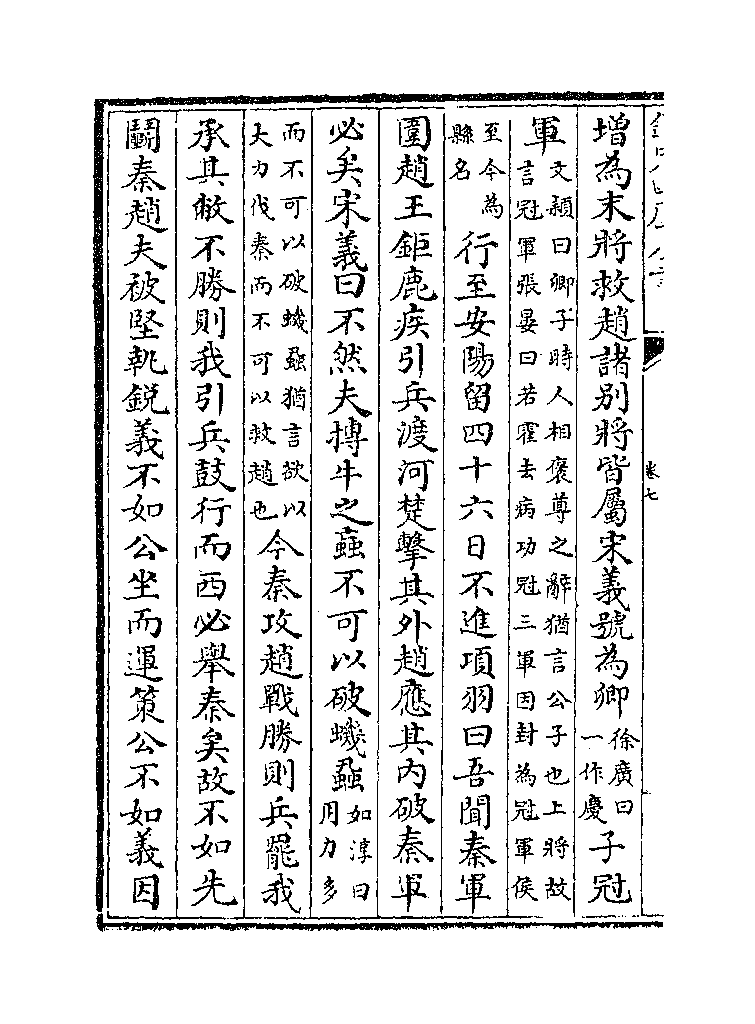 卷七
增為末將救趙諸別將皆屬宋義號為卿徐廣曰一作慶子冠
軍文頴曰卿子時人相褒尊之辭猶言公子也上將故言冠軍張晏曰若霍去病功冠三軍因封為冠軍侯
至今為縣名行至安陽留四十六日不進項羽曰吾聞秦軍
圍趙王鉅鹿疾引兵渡河楚擊其外趙應其內破秦軍
必矣宋義曰不然夫搏牛之蝱不可以破蟣蝨如淳曰用力多
而不可以破蟣蝨猶言欲以大力伐秦而不可以救趙也今秦攻趙戰勝則兵罷我
承其敝不勝則我引兵鼓行而西必舉秦矣故不如先
鬭秦趙夫被堅執鋭義不如公坐而運策公不如義因